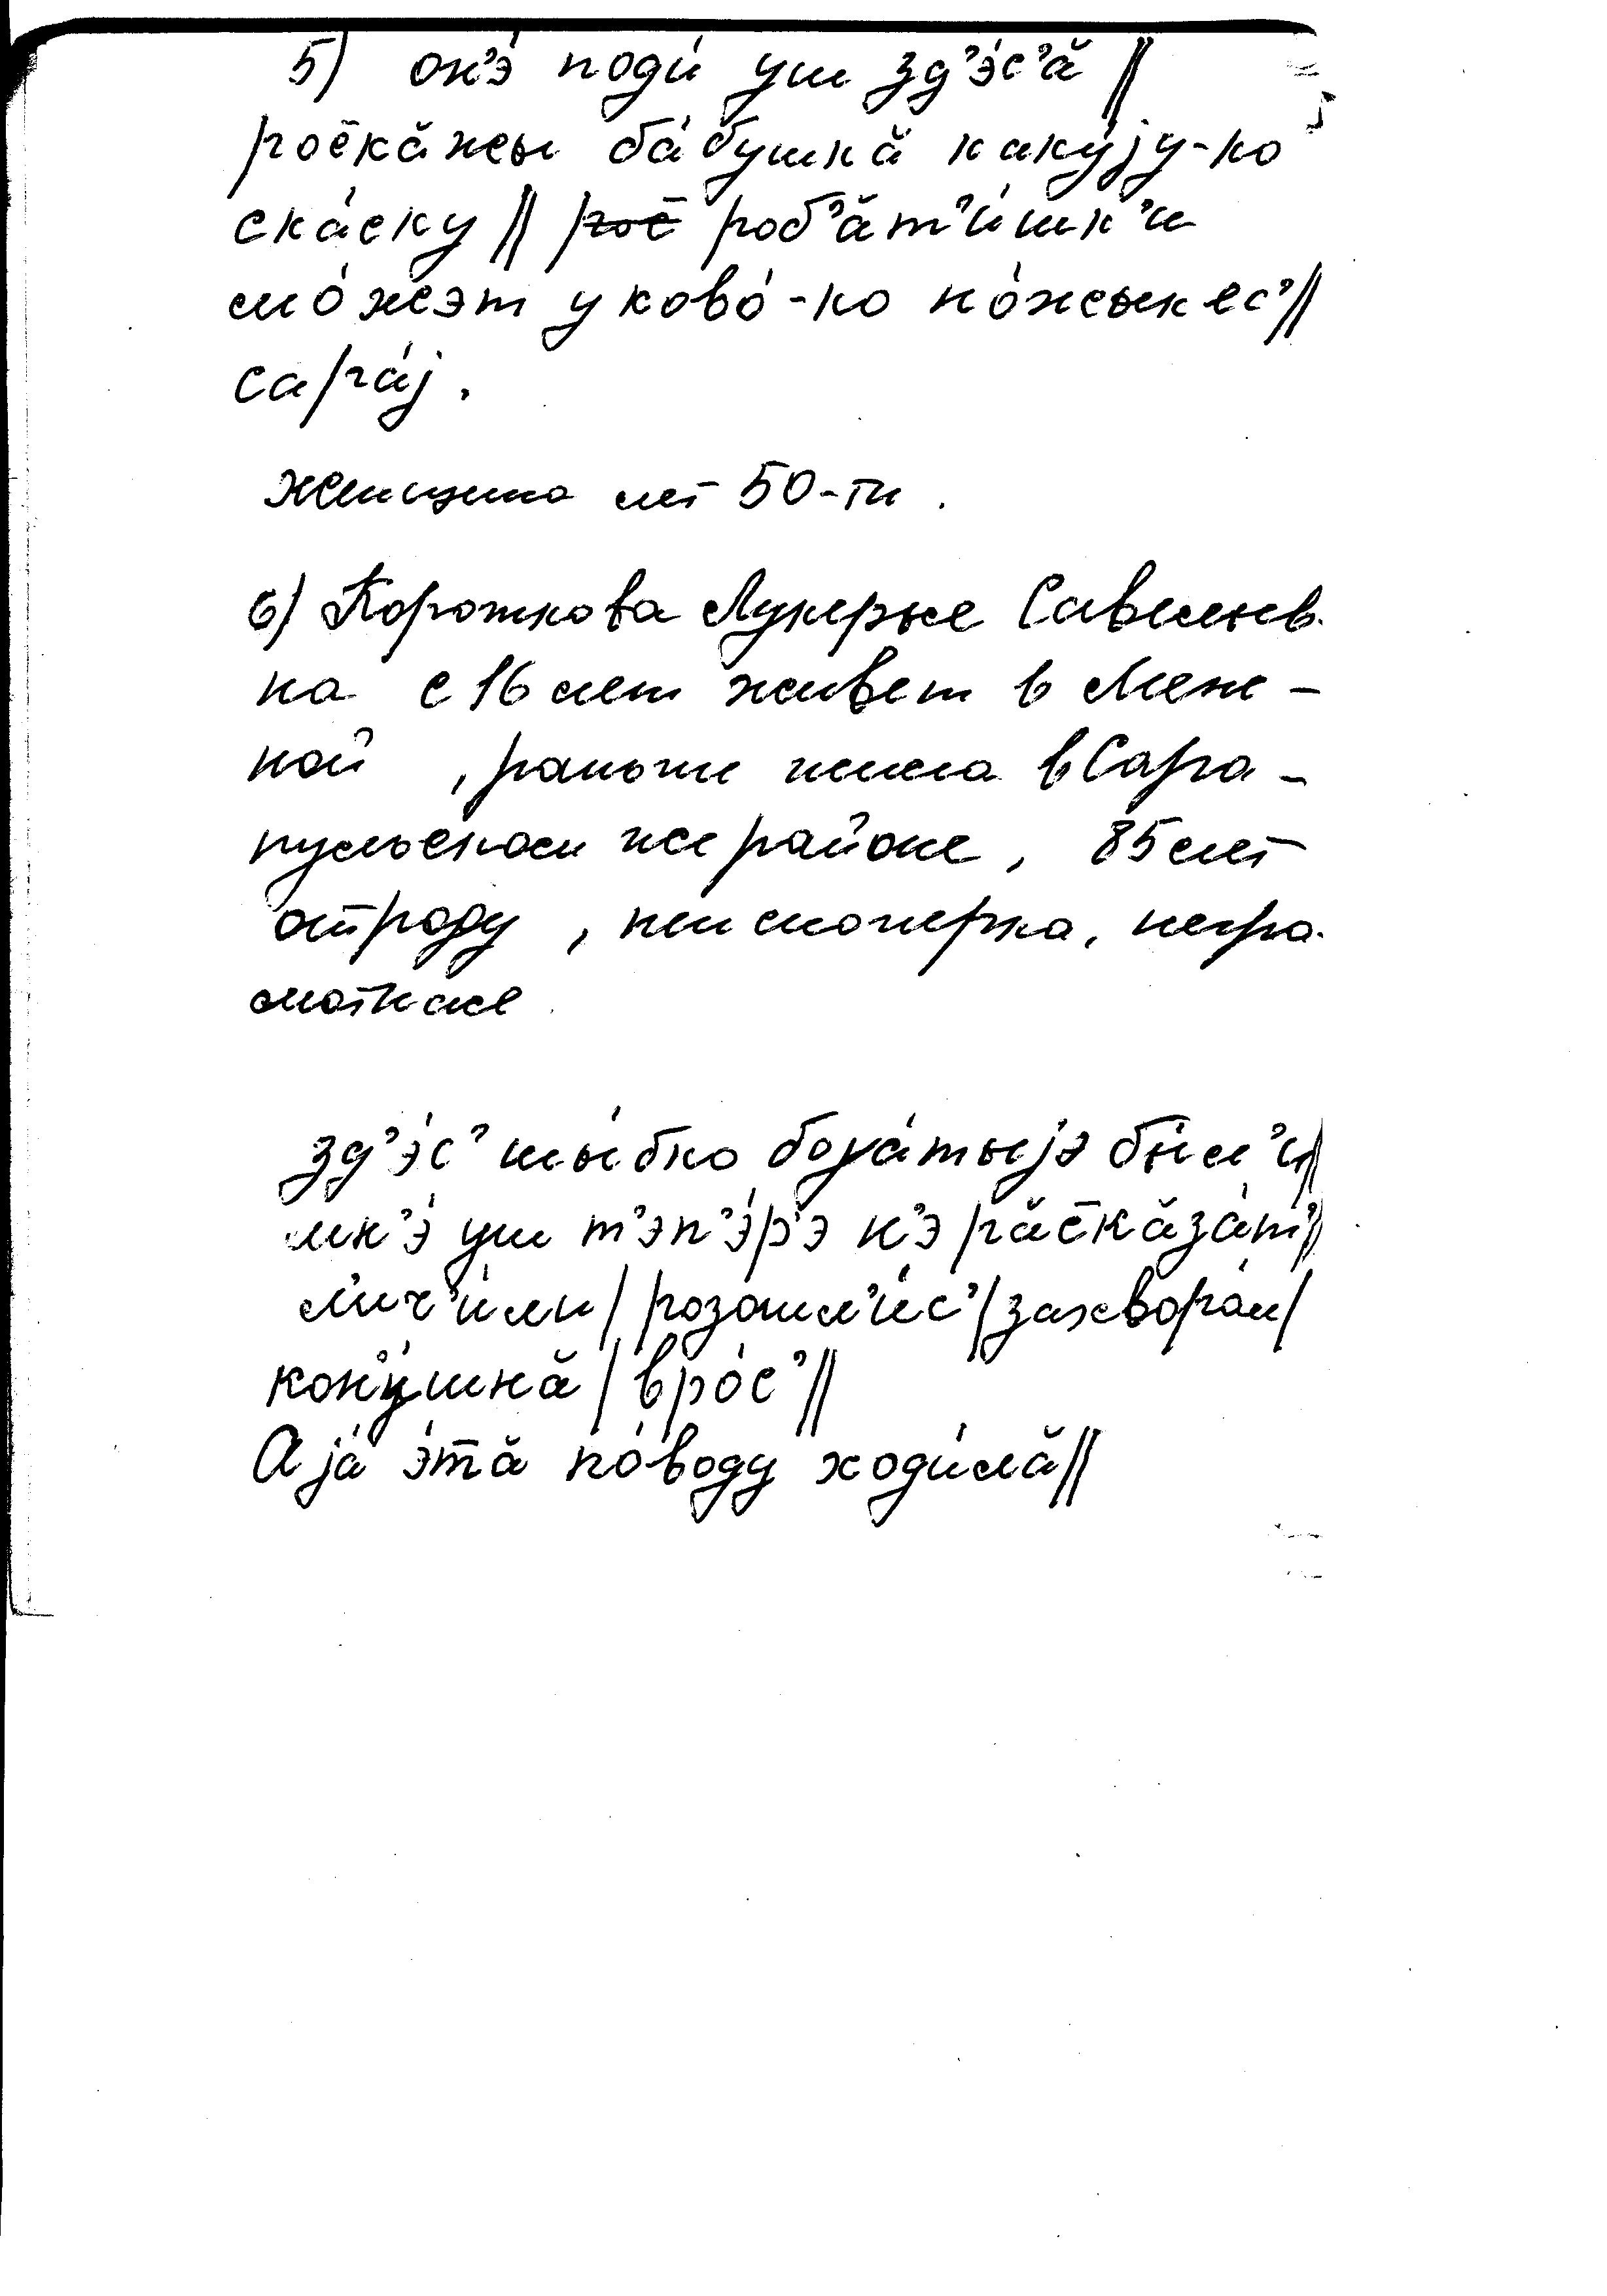 5) он'э́ поди́ уш зд'э́с'ӑ ||
рос̄кӑжы ба́бушкӑ каку́jу-ко
ска́ску || роб'ӑт'и́шк'и
мо́жэт у ково́-ко но́жык ес' ||
сара́j.
женщина лет 50-ти.
6) Короткова Лукерья Савельев-
на с 16 лет живет в Меж-
ной, раньше жила в Сара-
пульском же районе, 85 лет
отроду, пенсионерка, негра-
мотная
зд'э́с' шы́бко боγа́тыjэ бы́л'и ||
мн'э́ уш т'эп'э́р'э н'э рӑс̄кӑза́т' ||
л'ич'и́ли | розошл'и́с' | захвора́л |
кон'у́шнӑ | вро́с' ||
А jа́ э́т̄ӑ по́воду ходи́лӑ ||